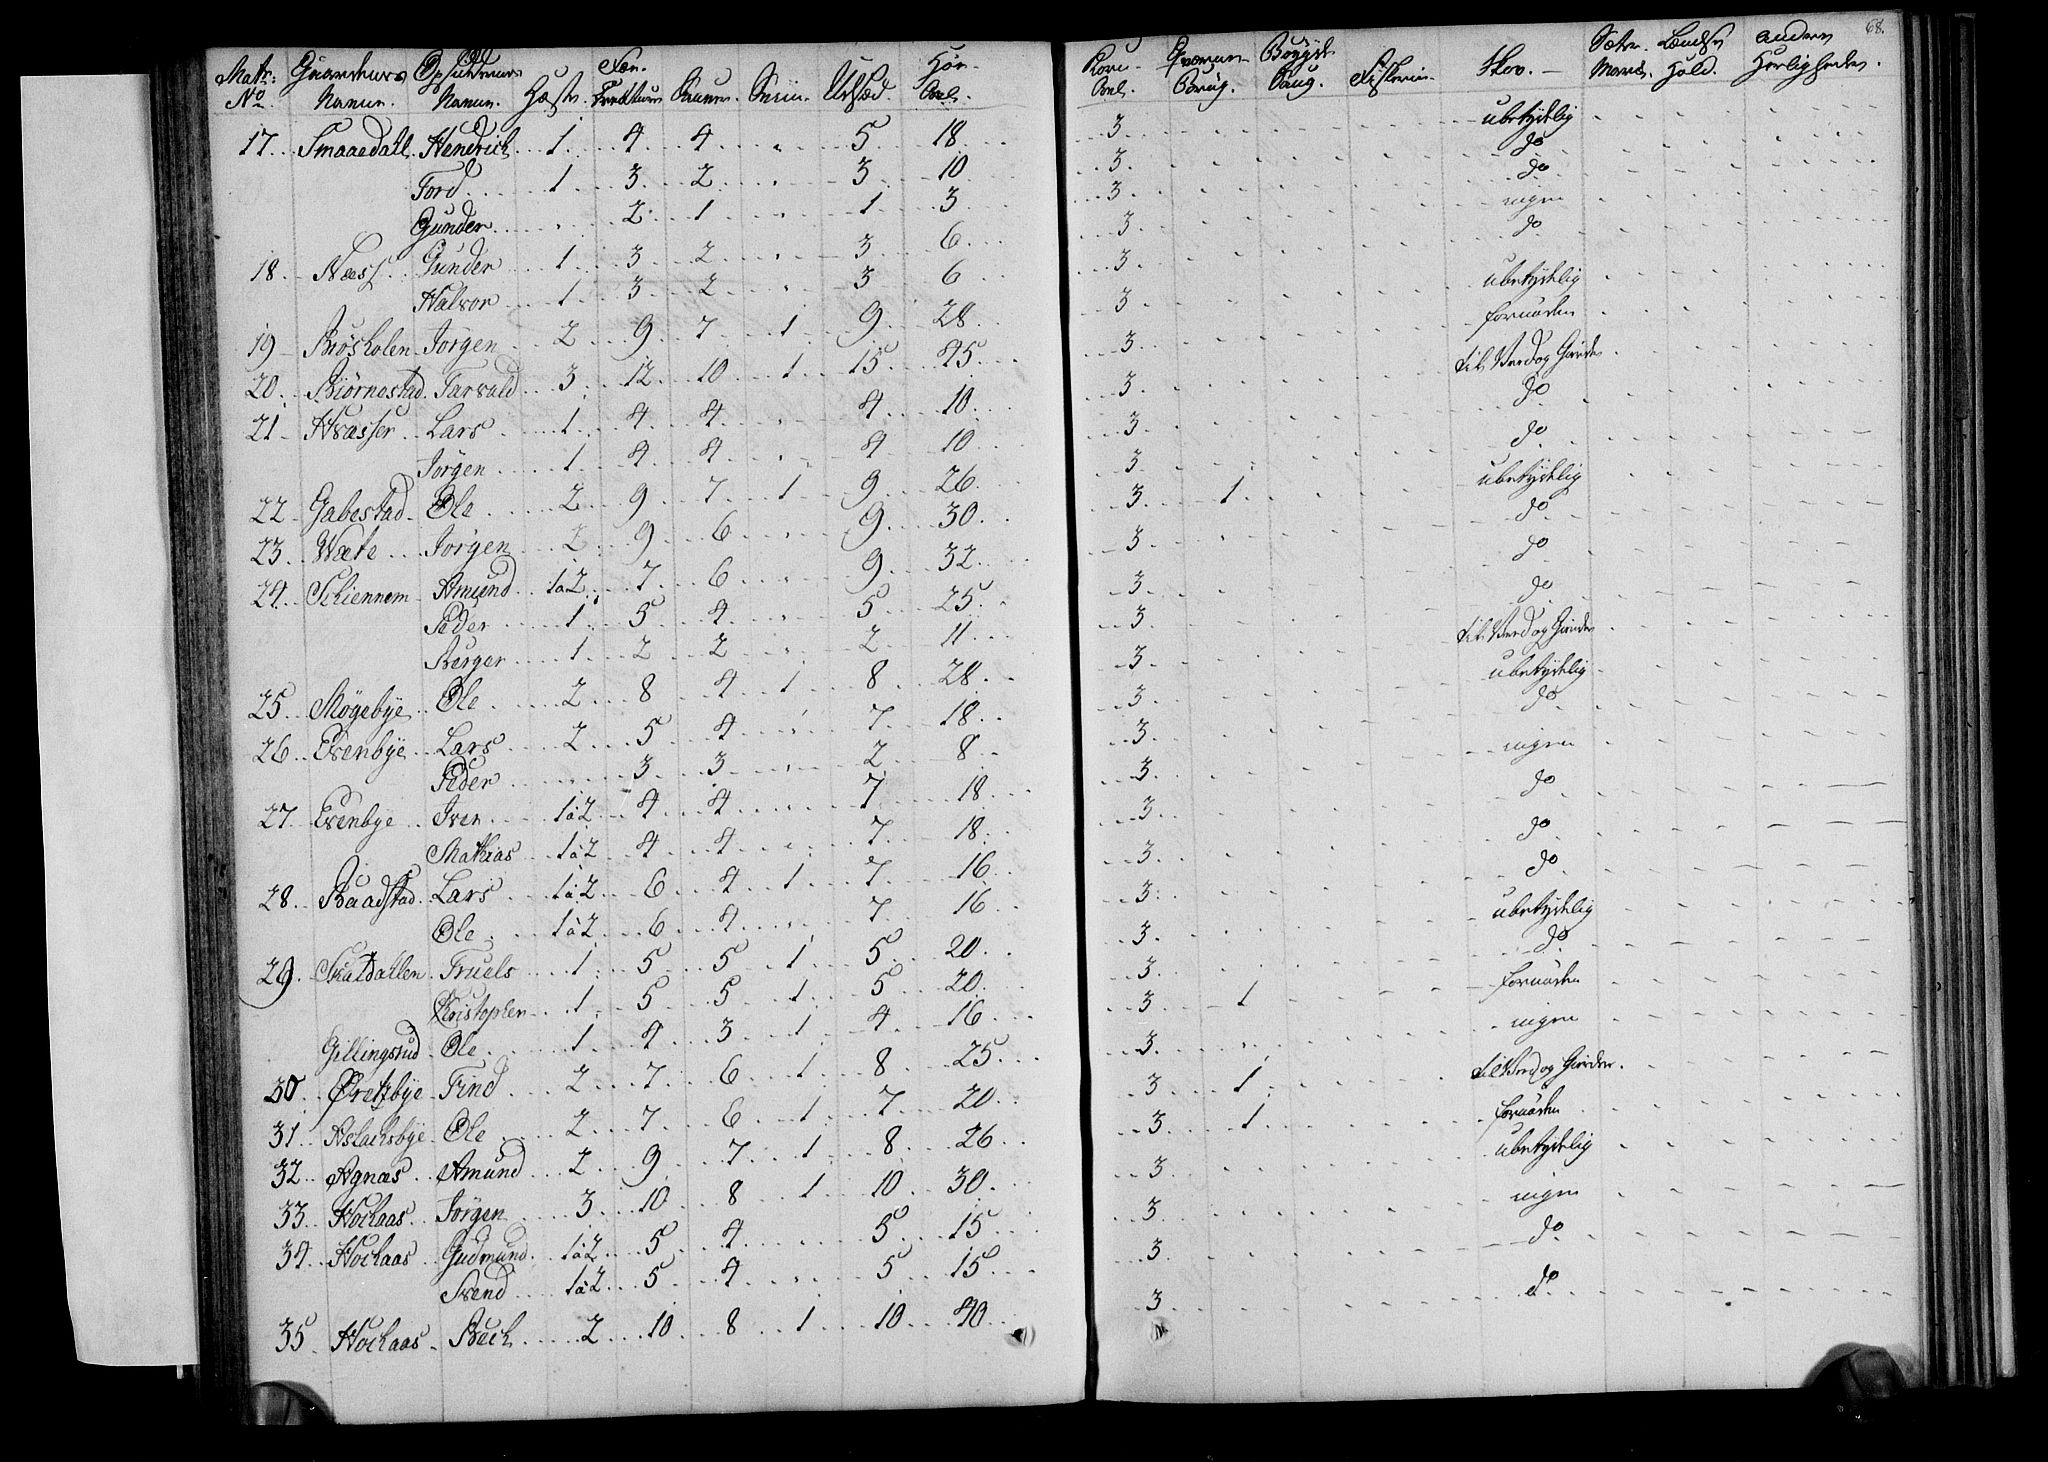 68.
Matr: No. Gaardenes Navne. Opsiddernes Navne. Hæste. Fæe- Creaturer Sauer Sviin. Udsæd. Høe- Avl. Korn- Avl. Qværne- Brug. Bøygde Saug. Fiskerie. Skov. Sæter. Havnes. Hold. andre Herligheder.
17. Smaaedall. Hendrich 1. 4. 4. " 5. 18. 3. ubetydelig
Tord 1. 3. 2. " 3. 10. 3. do
Gunder " 2. 1. " 1. 3. 3. do
18. Næss. Gunder 1. 3. 2. " 3. 6. 3. ingen
Halvor 1. 3. 2. " 3. 6. 3. do
19. Brøsholen Jørgen 2. 9. 7. 1. 9. 28. 3. ubetydelig
20. Biørnestad. Tarvald 3. 12. 10. 1. 15. 45. 3. fornøden
21. Hvasser Lars 1. 4. 4. 4. 10. 3. til Ved og Gierde
Jørgen 1. 4. 4. " 4. 10. 3. do
22. Gabestad Ole 2. 9. 7. 1. 9. 26. 3. 1. do
23. Wæte Jørgen 2. 9. 6. 9. 30. 3. ubetydelig
24. Schiennem Amund 1a2. 7. 6. " 9. 32. 3. do
Peder 1. 5. 4. " 5. 25. 3. do
Berger 1. 2. 2. " 2. 11. 3. do
25. Møgebye Ole 2. 8. 4. 1. 8. 28. 3. til Ved og Gierde
26. Evenbye Lars 2. 5. 4. " 7. 18. 3. ubetydelig
Peder 3. 3. " 2. 8. 3. do
27. Evenbye Iver 1a2. 4. 4. 7. 18. 3. ingen
Mathias 1a2. 4. 4. " 7. 18. 3. do
28. Raadstad. Lars 1a2. 6. 4. 1. 7. 16. 3. do
Ole 1a2. 6. 4. " 7. 16. 3. do
29. Skutdallen. Truels 1. 5. 5. 1. 5. 20. 3. ubetydelig
Kristopher 1. 5. 5. 1. 5. 20. 3. do
Gillingsrud Ole 1. 4. 3. 1. 4. 16. 3. 1 fornøden
30. Ørekbye Find 2. 7. 6. 1. 8. 25. 3. ingen
31. Aslachsbye Ole 2. 7. 6. 1. 7. 20. 3. 1. til Ved og Gierder.
32. Agnæs Amund 2. 9. 7. 1. 8. 26. 3. 1. fornøden
33. Hochaas. Jørgen 3. 10. 8. 1. 10. 30. 3. ubetydelig
34. Hochaas Gudmund. 1a2. 5. 4. 5. 15. 3. ingen
Svend 1a2. 5. 4. " 5. 15. 3. do
35. Hochaas Bech 2. 10. 8. 1. 10. 40. 3. do